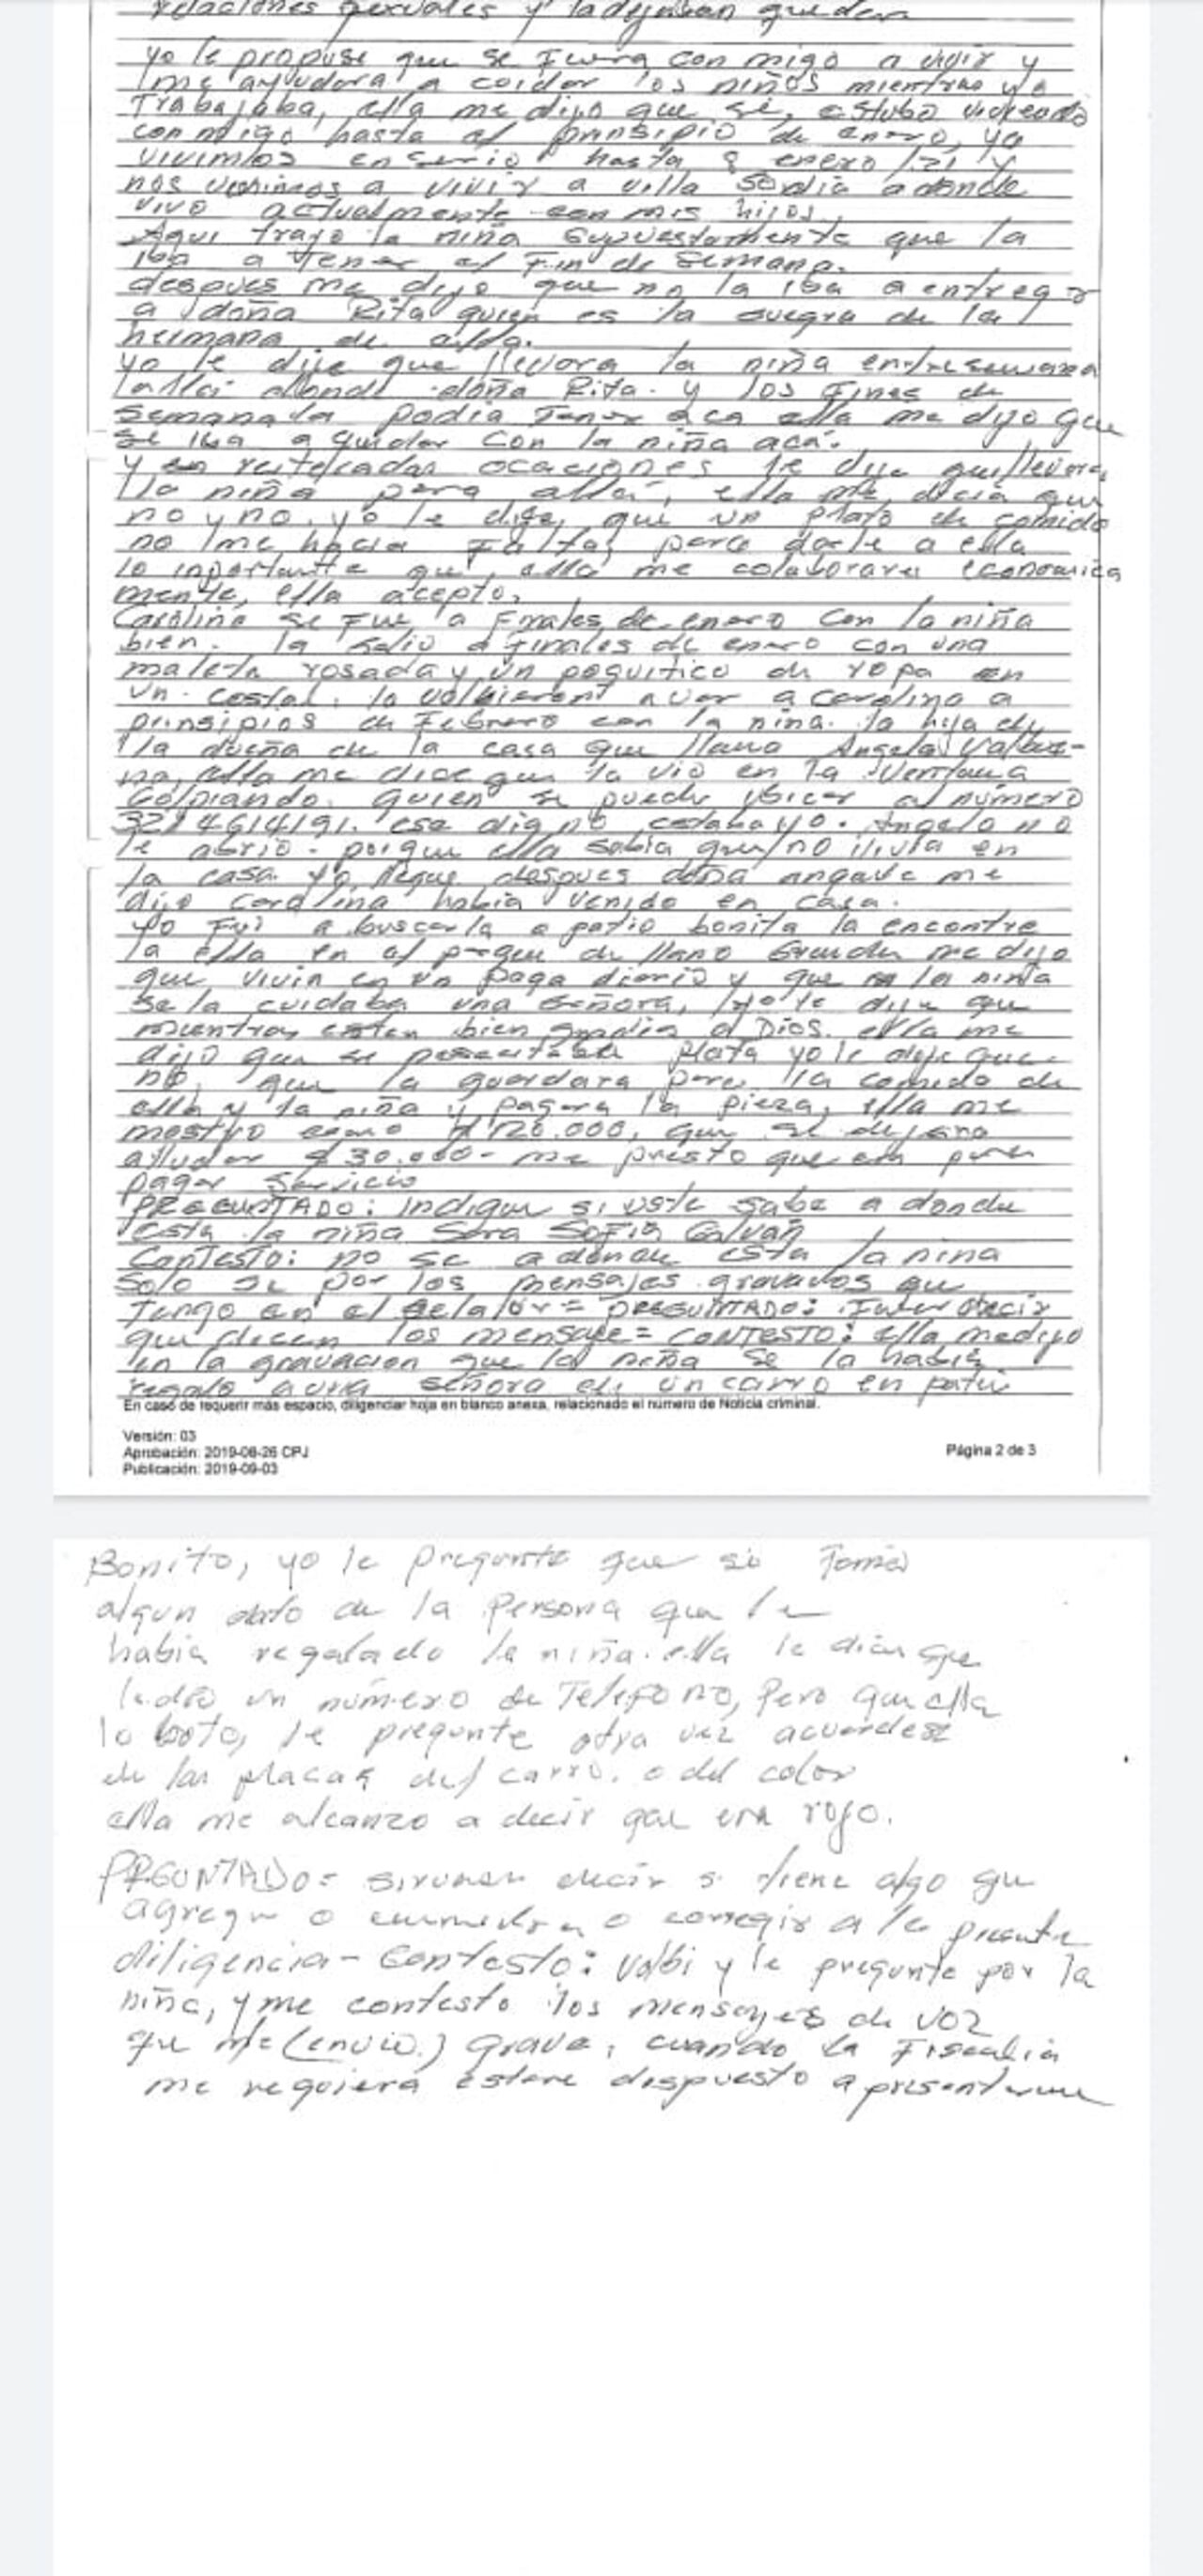 relaciones sexuales y la dejaban quedar
yo le propuse que se fuera con migo a vivir y
me ayudara a coidar los niños mientras yo
Trabajaba, ella me dijo que si, estubo viviendo
con migo hasta el prinsipio de enero, ya
vivimos en hasta 8 enero /21 y
nos venimos a vivir a villa a donde
vivo actualmente con mis hijos.
Aqui trajo la niña supuestamente que la
iba a tener el Fin de semana.
despues me dijo que no la iba a entregar
a doña Rita quien es la suegra de la
hermana de ella.
yo le dije que llevara la niña entresemana
alla donde doña Rita. y los Fines de
semana la podia Tener aca ella me dijo que
se iba a quidar con la niña acá.
y en reiteradas ocaciones le dije que llevara
la niña para alla, ella me decia que
no y no. yo le dije, que un plato de comida
no me hacia Falta, para darle a ella
lo inportante que ella me colaborara economica
mente, ella acepto.
Carolina se Fue a Finales de enero con la niña
bien. la salio a Finales de enero con una
maleta rosada y un poquitico de ropa en
un costal. la volbieron a ver a Carolina a
prinsipios de Febrero con la niña. la hija de
la dueña de la casa que llama Angela Valbue-
na, ella me dice que la vio en la ventana
Golpiando. quien se puede ubicar al número
3214614191. ese dia no estaba yo. Angela no
le abrio. porque ella sabia que no ilivia en
la casa. yo llegue despues doña angela me
dijo carolina habia venido en casa.
yo Fui a buscarla a patio bonito la encontre
la ella en el parque de llano Grande me dijo
que vivia en un paga diario y que la niña
se la cuidaba una señora, yo le dije que
mientras esten bien gracias a Dios. ella me
dijo que si necesitaba plata yo le dije que
no, que la guardara para la comida de
ella y la niña y pagara la pieza, ella me
mostro como $ 120.000, que se dejara
alludar $ 30.000 - me presto que era para
pagar servicio
PREGUNTADO: Indique si uste sabe a donde
esta la niña Sara Sofia Galvan
Contesto: no se a donde esta la nina
solo se por los mensajes gravados que
Tengo en el selalor = PREGUNTADO: decir
que dicen los mensaje = CONTESTO: ella medijo
en la gravacion que la niña se la habia
regalo a una señora de un carro en patio
En caso de requerir más espacio, diligenciar hoja en blanco anexa, relacionado el número de Noticia criminal.
Versión: 03
Aprobación: 2019-08-26 CPJ
Publicación: 2019-09-03
Página 2 de 3
Bonito, yo le pregunte que si Tomo
algun dato de la persona que le
habia regalado la niña. ella le dice que
le dio un número de Telefono, pero que ella
lo boto, le pregunte otra vez acuerdese
de las placas del carro. o del color
ella me alcanzo a decir que era rojo.
PREGUNTADO = sirvase decir si tiene algo que
agregar o enmendar o corregir a la presente
diligencia - Contesto: volbi y le pregunte por la
niña, y me contesto los mensajes de voz
que me (envio.) grave, cuando la Fiscalia
me requiera estare dispuesto a presentarme